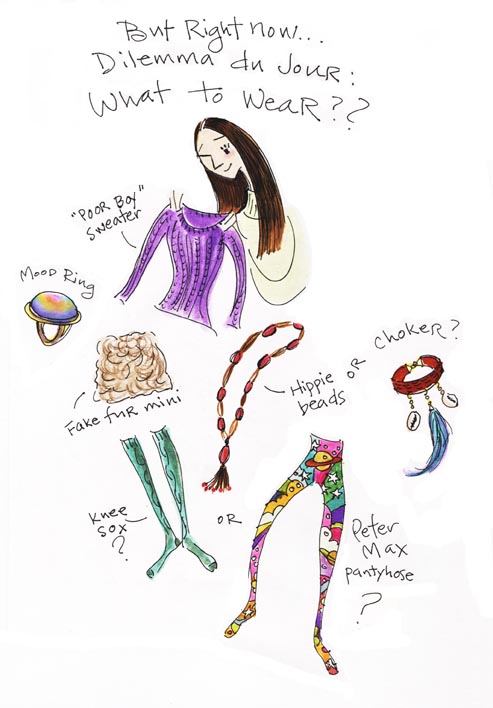 But Right now...
Dilemma du Jour:
What to Wear??
"Poor Boy"
Sweater
Mood Ring
Fake fur mini
Hippie
beads
OR
Choker?
Knee
Sox
?
OR
Peter
Max
pantyhose
?